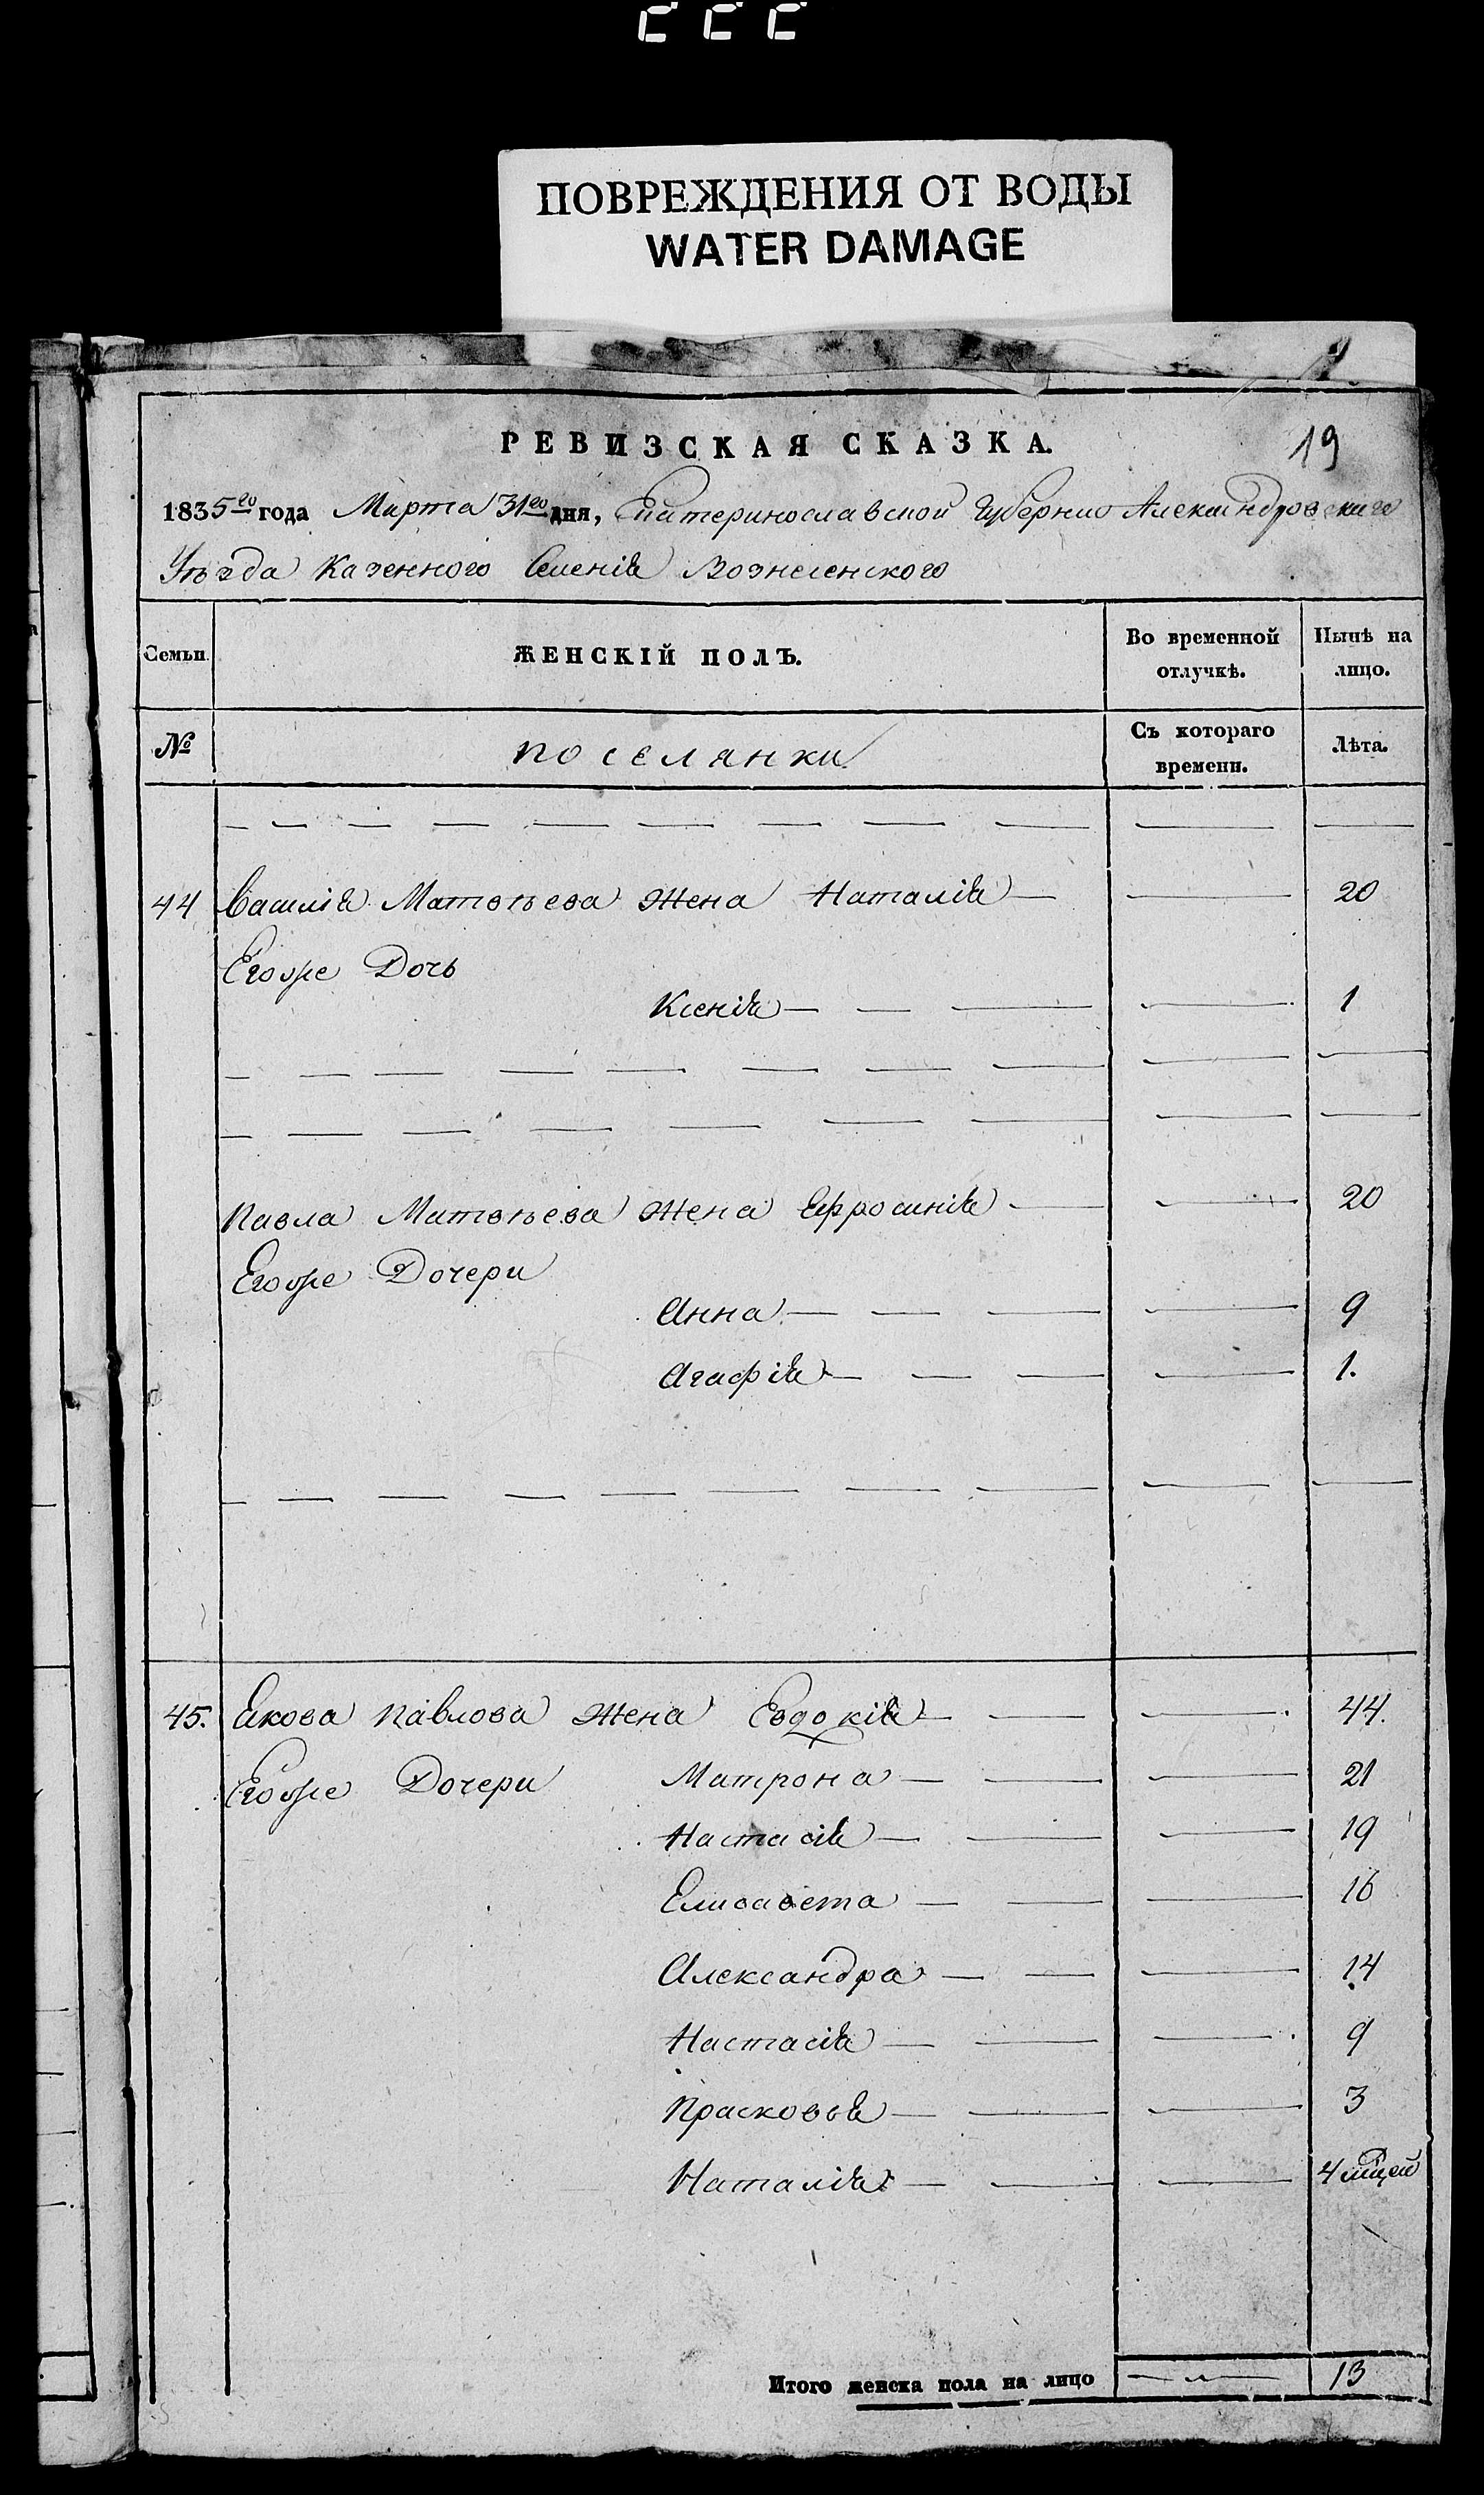 ПОВРЕЖДЕНИЯ ОТ ВОДЫ
WATER DAMAGE
РЕВИЗСКАЯ СКАЗКА.
19
1835го года Марта 31го дня, Екатеринославской Губернии Александровскаго
Уѣзда Казенного Селенія Вознесенского
Семьи.
ЖЕНСКІЙ ПОЛЪ.
Во временной отлучкѣ.
Нынѣ на лицо.
№
поселянки
Съ котораго времени.
Лѣта.
44 Василія Матвѣева Жена Наталія — — 20
Егоже Дочь
Ксенія — — — — 1
Павла Матвѣева Жена Ефросинія — — 20
Егоже Дочери
Анна — — — — 9
Агафія — — — — 1.
45. Якова Павлова Жена Евдокія — — — 44.
Егоже Дочери Матрона — — — 21
Настасія — — — 19
Елисавета — — — 16
Александра — — — 14
Настасія — — — 9
Прасковья — — — 3
Наталія — — — 4 мцей
Итого женска пола на лицо — 13